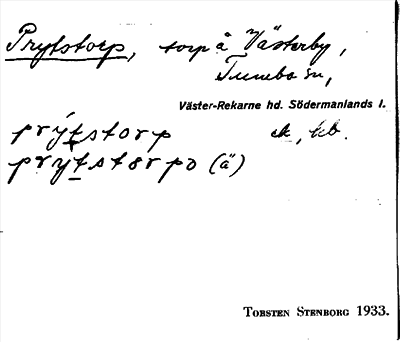 Prytstorp, torp å Västerby,
Tumbo sn,
Väster-Rekarne hd. Södermanlands l.
prýtstorp ek, kb.
prýtstørpo (ä)
TORSTEN STENBORG 1933.